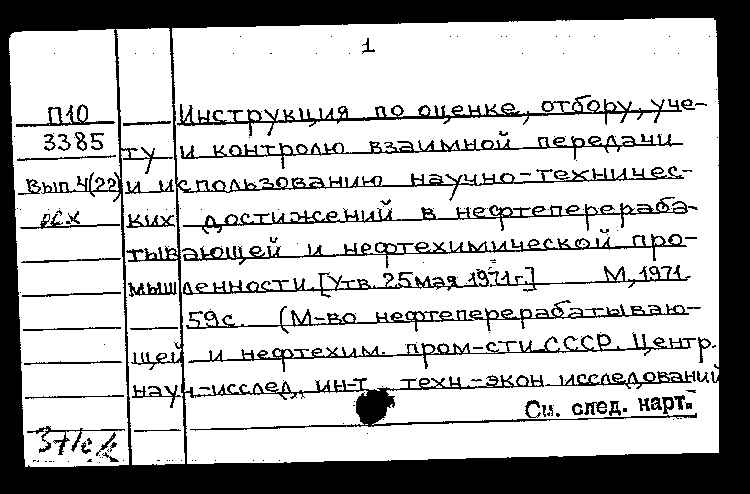 1
П10
3385
Вып.4(22)
Инструкция по оценке, отбору, уче-
ту и контролю взаимной передачи
и использованию научно-техничес-
ких достижений в нефтеперераба-
тывающей и нефтехимической про-
мышленности. [Утв. 25 мая 1971 г.] М, 1971.
59с. (М-во нефтеперерабатываю-
щей и нефтехим. пром-сти СССР. Центр.
науч.-исслед. ин-т техн.-экон. исследований
См. след. карт.